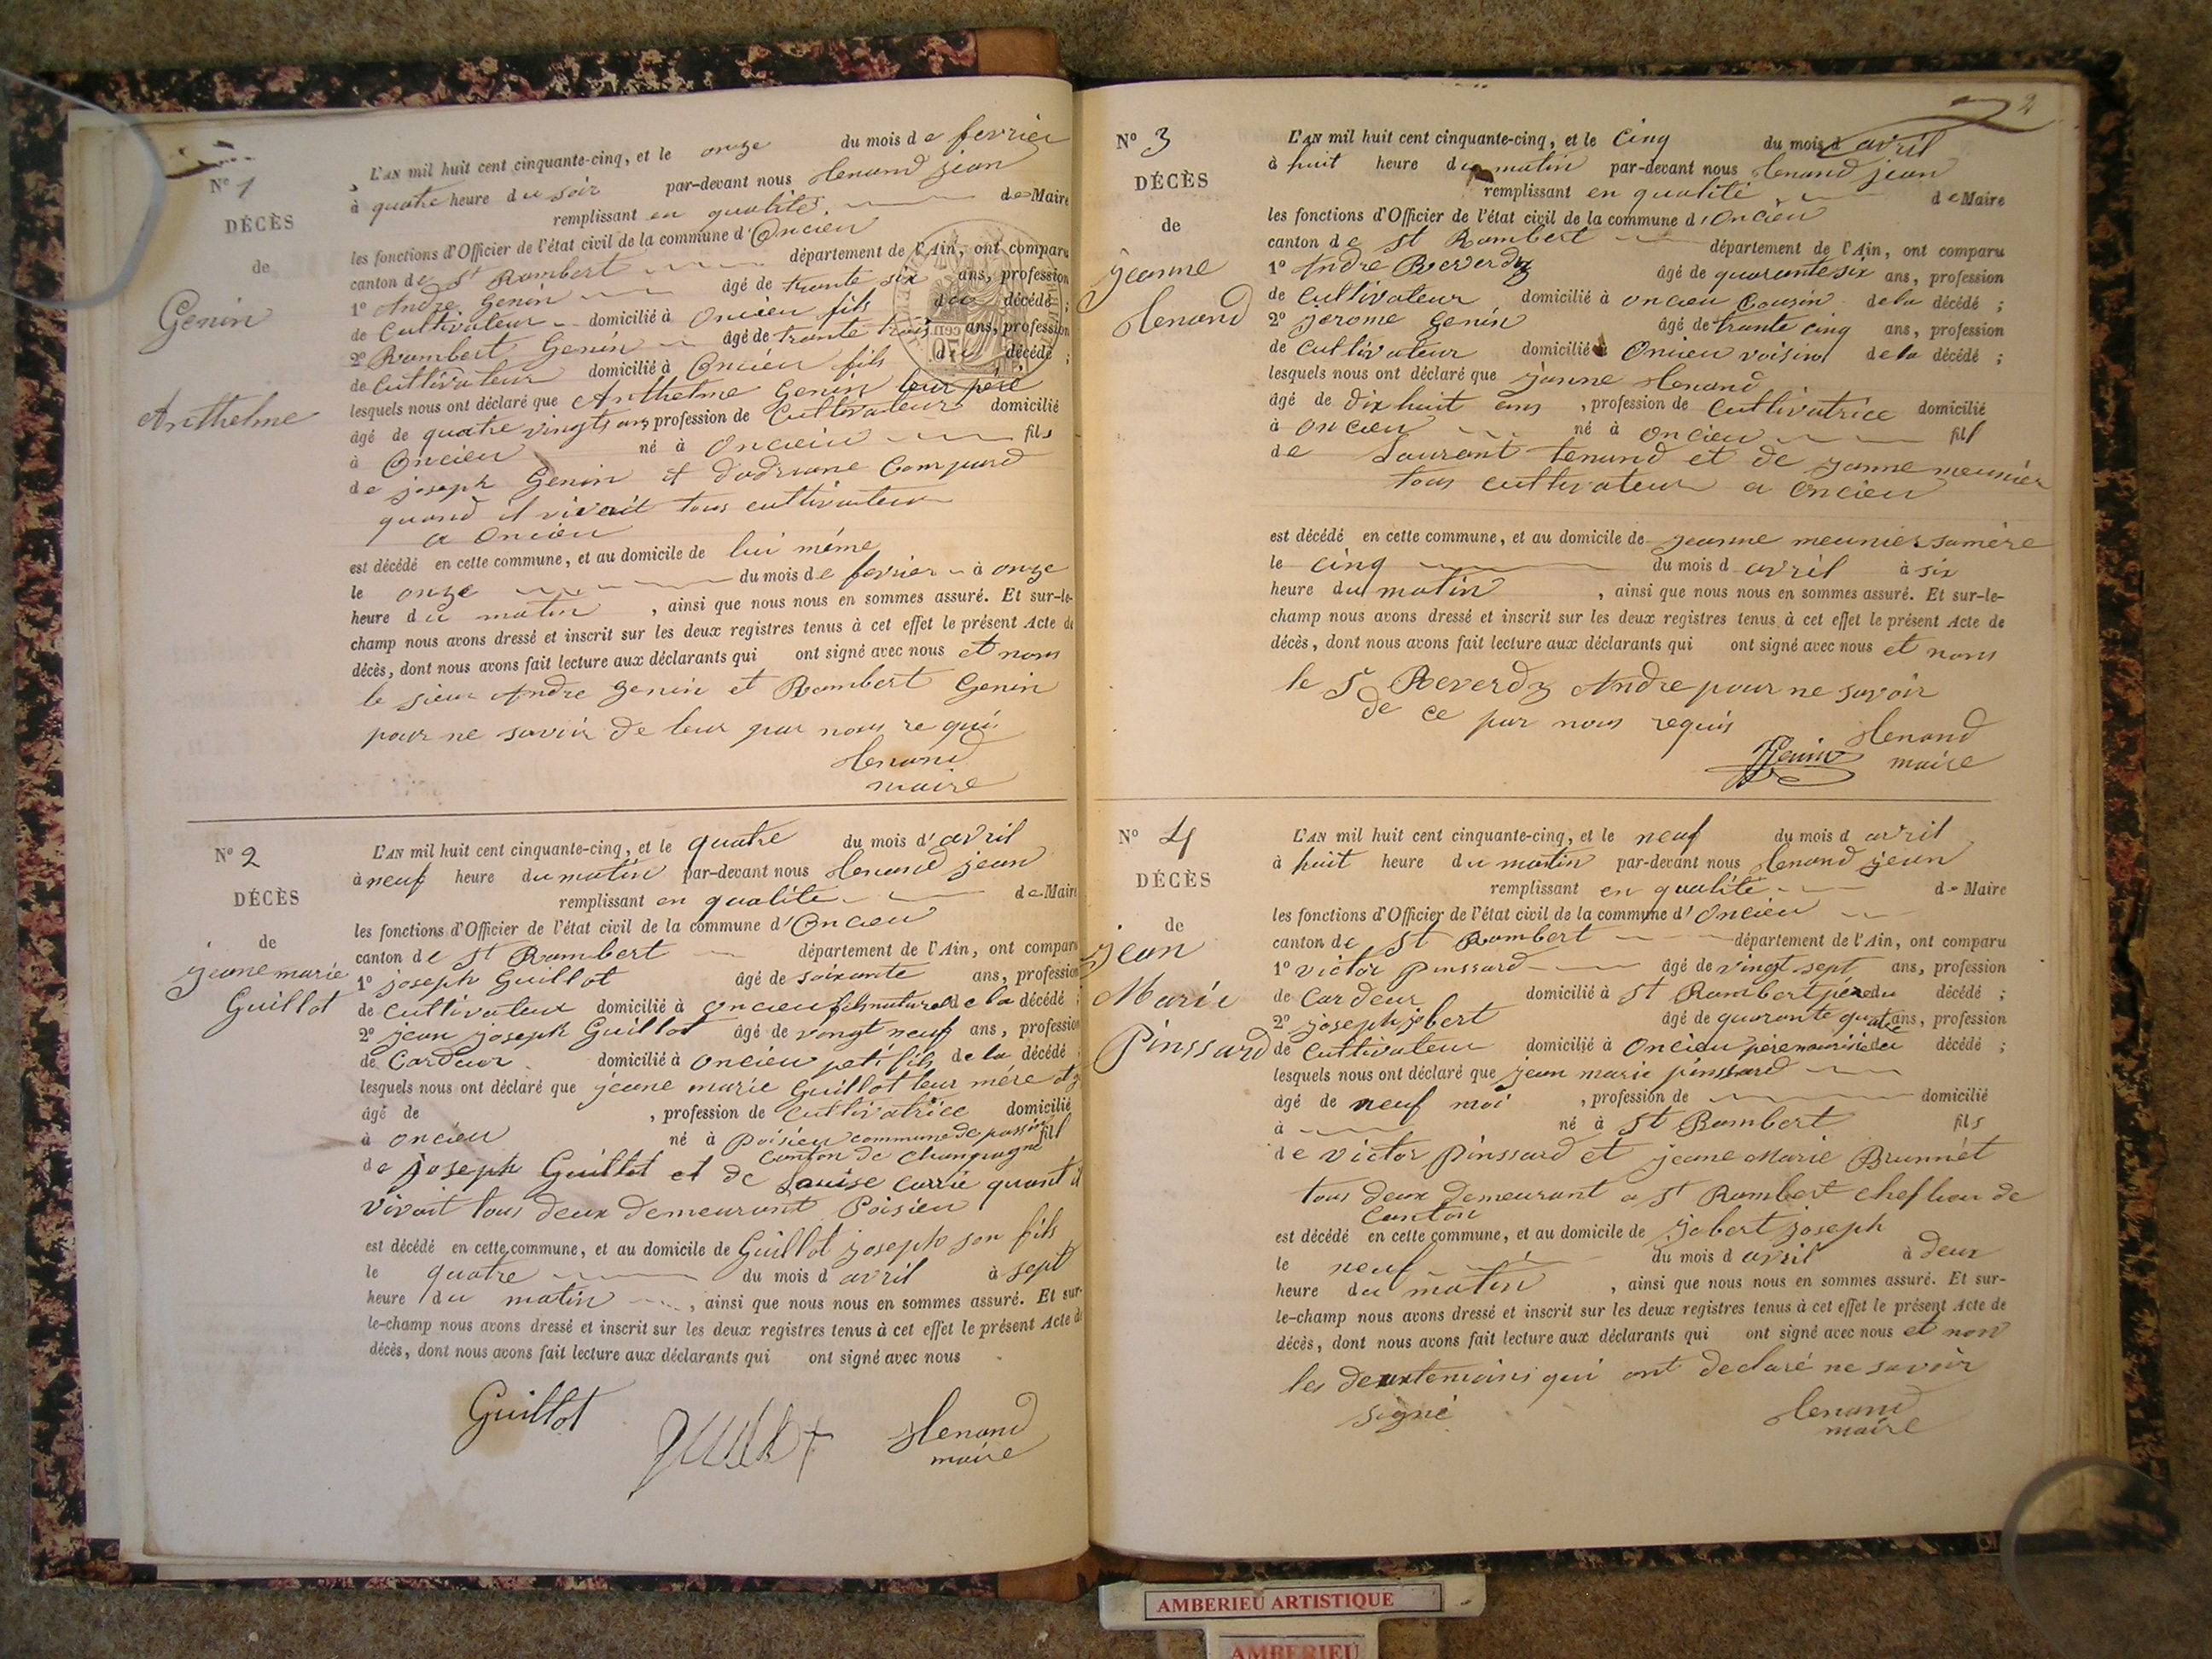 N° 1
DÉCÈS
de
Genin
Anthelme
L'AN mil huit cent cinquante-cinq, et le onze du mois de fevrier
à quatre heure du soir par-devant nous tenand jean
remplissant en qualité de Maire
les fonctions d'Officier de l'état civil de la commune d'Oncieu
canton de St Rambert département de l'Ain, ont comparu
1° Andre Genin âgé de trante six ans, profession
de Cultivateur domicilié à Oncieu fils du décédé ;
2° Rambert Genin âgé de trante trois ans, profession
de Cultivateur domicilié à Oncieu fils du décédé ;
lesquels nous ont déclaré que Anthelme Genin leur père
âgé de quatre vingts ans profession de Cultivateur domicilié
à Oncieu né à Oncieu fils
de joseph Genin et d'adriane Compard
quand il vivait tous cultivateur
a Oncieu
est décédé en cette commune, et au domicile de lui même
le onze du mois de fevrier à onze
heure du matin , ainsi que nous nous en sommes assuré. Et sur-le-
champ nous avons dressé et inscrit sur les deux registres tenus à cet effet le présent Acte de
décès, dont nous avons fait lecture aux déclarants qui ont signé avec nous et nom
le sieur Andre Genin et Rambert Genin
pour ne savoir de leur par nous requi
tenand
maire
N° 2
DÉCÈS
de
jeane marie
Guillot
L'AN mil huit cent cinquante-cinq, et le quatre du mois d'avril
à neuf heure du matin par-devant nous tenand jean
remplissant en qualite de Maire
les fonctions d'Officier de l'état civil de la commune d'Oncieu
canton de St Rambert département de l'Ain, ont comparu
1° joseph Guillot âgé de soixante ans, profession
de Cultivateur domicilié à Oncieu fils naturel de la décédé ;
2° jean joseph Guillot âgé de vongt neuf ans, profession
de Cardeur domicilié à Oncieu peti fils de la décédé
lesquels nous ont déclaré que jeane marie Guillot leur mére et
âgé de , profession de Cultivatrice domicilié
à Oncieu né à Poisieu commune de fil
canton de Champagne
de joseph Guillot et de Louise Carrie quant il
vivait tous deux demeurant Poisieu
est décédé en cette commune, et au domicile de Guillot joseph son fils
le quatre du mois d avril à sept
heure du matin , ainsi que nous nous en sommes assuré. Et sur-
le-champ nous avons dressé et inscrit sur les deux registres tenus à cet effet le présent Acte de
décès, dont nous avons fait lecture aux déclarants qui ont signé avec nous
Guillot tenand
maire
2
N° 3
DÉCÈS
de
jeanne
tenand
L'AN mil huit cent cinquante-cinq, et le Cinq du mois d avril
à huit heure du matin par-devant nous tenand jean
remplissant en qualité de Maire
les fonctions d'Officier de l'état civil de la commune d'Oncieu
canton de St Rambert département de l'Ain, ont comparu
1° Andre Reverdy âgé de quarante six ans, profession
de Cultivateur domicilié à Oncieu Cousin de la décédé ;
2° jerome Genin âgé de trante cinq ans, profession
de Cultivateur domicilié à Oncieu voisin de la décédé ;
lesquels nous ont déclaré que janne tenand
âgé de dix huit ans , profession de Cultivatrice domicilié
à Oncieu né à Oncieu fil
de Laurent tenand et de janne meunier
tous cultivateur a Oncieu
est décédé en cette commune, et au domicile de jeanne meunier sa mère
le cinq du mois d avril à six
heure du matin , ainsi que nous nous en sommes assuré. Et sur-le-
champ nous avons dressé et inscrit sur les deux registres tenus à cet effet le présent Acte de
décès, dont nous avons fait lecture aux déclarants qui ont signé avec nous et nom
le Sr Reverdy Andre pour ne savoir
de ce par nous requis
Genin tenand
maire
N° 4
DÉCÈS
de
jean
Marie
Pinssard
L'AN mil huit cent cinquante-cinq, et le neuf du mois d avril
à huit heure du matin par-devant nous tenand jean
remplissant en qualité de Maire
les fonctions d'Officier de l'état civil de la commune d'Oncieu
canton de St Rambert département de l'Ain, ont comparu
1° victor pinssard âgé de vingt sept ans, profession
de Cardeur domicilié à St Rambert père du décédé ;
2° joseph jobert âgé de quarante quatre ans, profession
de Cultivateur domicilié à Oncieu père du décédé ;
lesquels nous ont déclaré que jean marie pinssard
âgé de neuf moi , profession de domicilié
à né à St Rambert fils
de victor pinssard et jeane Marie Brunnét
tous deux demeurant a St Rambert chef lieu de
Canton
est décédé en cette commune, et au domicile de jobert joseph
le neuf du mois d avril à deux
heure du matin , ainsi que nous nous en sommes assuré. Et sur-
le-champ nous avons dressé et inscrit sur les deux registres tenus à cet effet le présent Acte de
décès, dont nous avons fait lecture aux déclarants qui ont signé avec nous et non
les deux temoins qui ont declaré ne savoir
signé
tenand
maire
AMBERIEU ARTISTIQUE
AMBERIEU